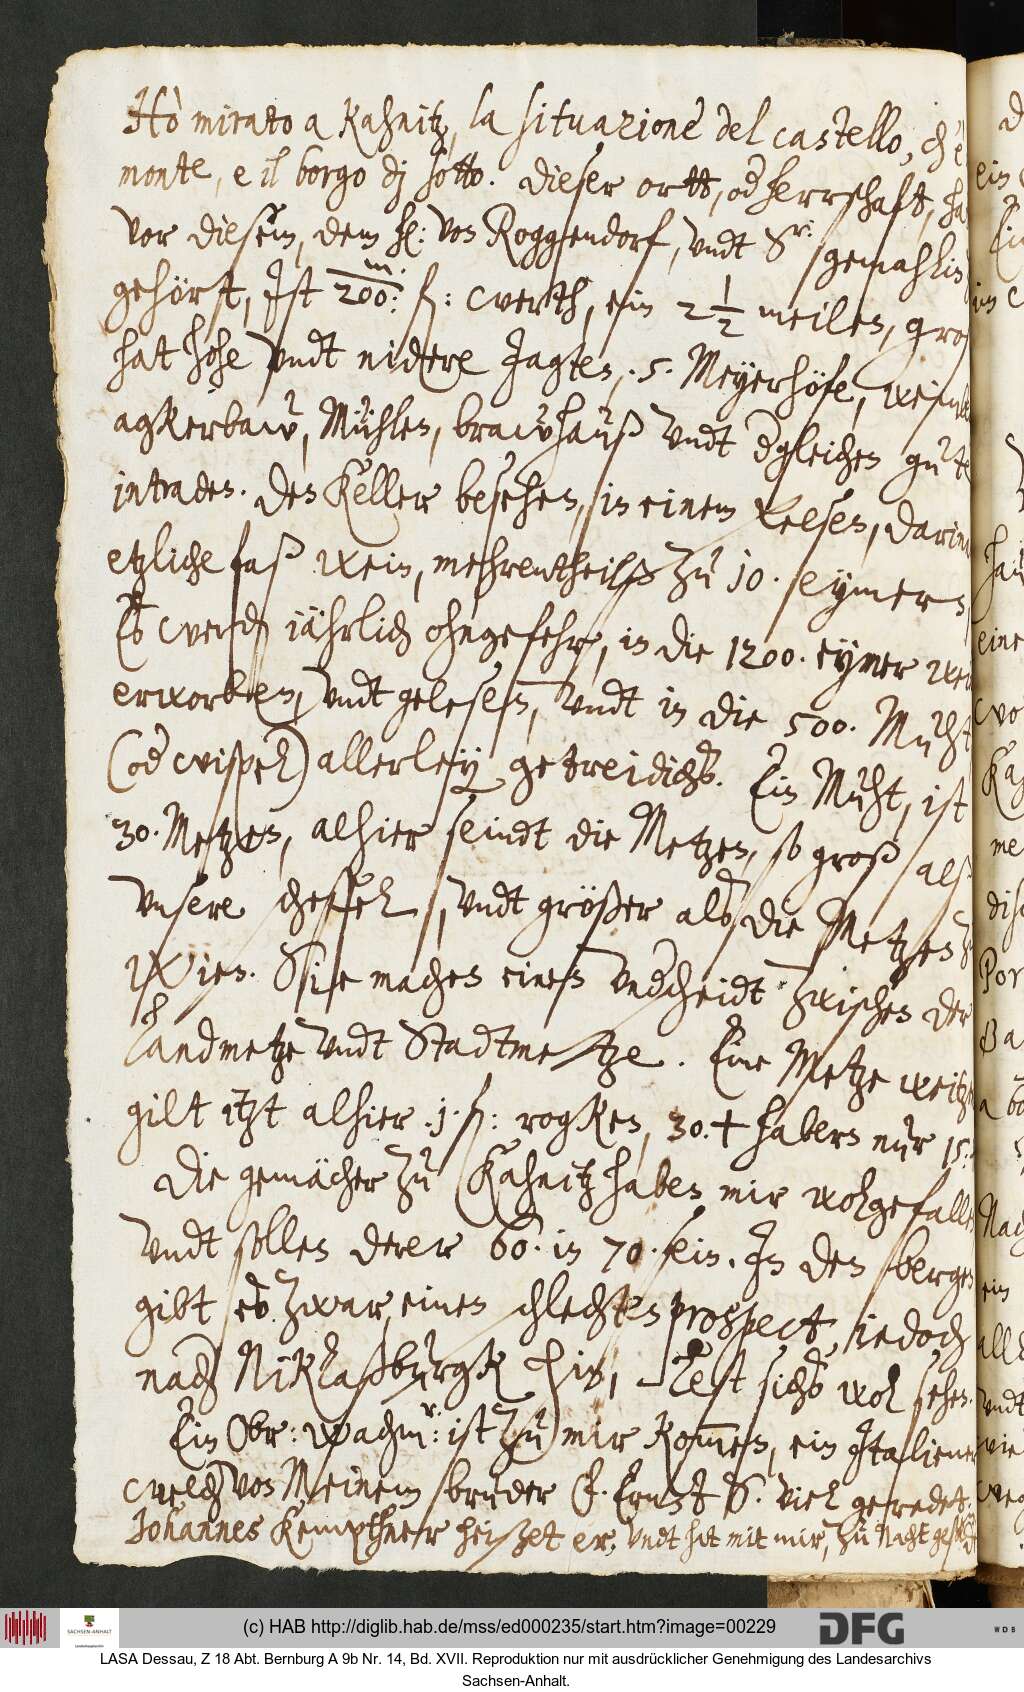 Hò mirato a Kahnitz, la situazione del castello, ch'è
monte, e il borgo dj sotto. Dieser ortt, od herrschaft, ha
vor diesem, dem h: von Roggendorf, vndt Sr: gemahlin
gehört, Ist 200: m. f: werth, ein 2½ meilen, groß
hat hohe vndt nidere Jagten, 5. Meyerhöfe, wein
agkerbaw, Mühlen, brawhauß vndt dgleichen gute
intraden. Den Keller besehen, in einem Felsen, darin
etzliche faß wein, mehrentheilß zu 10. eymern,
Es werden iährlich ohngefehr, in die 1200. eymer wein
erworben, vndt gelesen, vndt in die 500. Muht
(od wispel) allerley getreidichs. Ein Muht, ist
30. Metzen, alhier seindt die Metzen, so groß alß
vnsere scheffel, vndt größer als die Metzen zu
Wien. Sie machen einen vndscheidt zwischen der
Landmetze vndt Stadtmetze. Eine Metze weitzen
gilt itzt alhier .1. f: rogken, 30. + habern nur 15.
Die gemächer zu Kahnitz haben mir wolgefallen
vndt sollen derer 60. in 70. sein. In den bergen
gibt es zwar einen schlechten prospect, iedoch
nach Niklaßburgk hin, lest sichs wol sehen.
Ein Obr: wachmr: ist zu mir kommen, ein Italiener
welcher von Meinem bruder F. Ernst S. viel geredet.
Johannes Kempthner heißet er, vndt hat mit mir, zu Nacht
(c) HAB http://diglib.hab.de/mss/ed000235/start.htm?image=00229
DFG
WDB
SACHSEN-ANHALT
LASA Dessau, Z 18 Abt. Bernburg A 9b Nr. 14, Bd. XVII. Reproduktion nur mit ausdrücklicher Genehmigung des Landesarchivs
Sachsen-Anhalt.